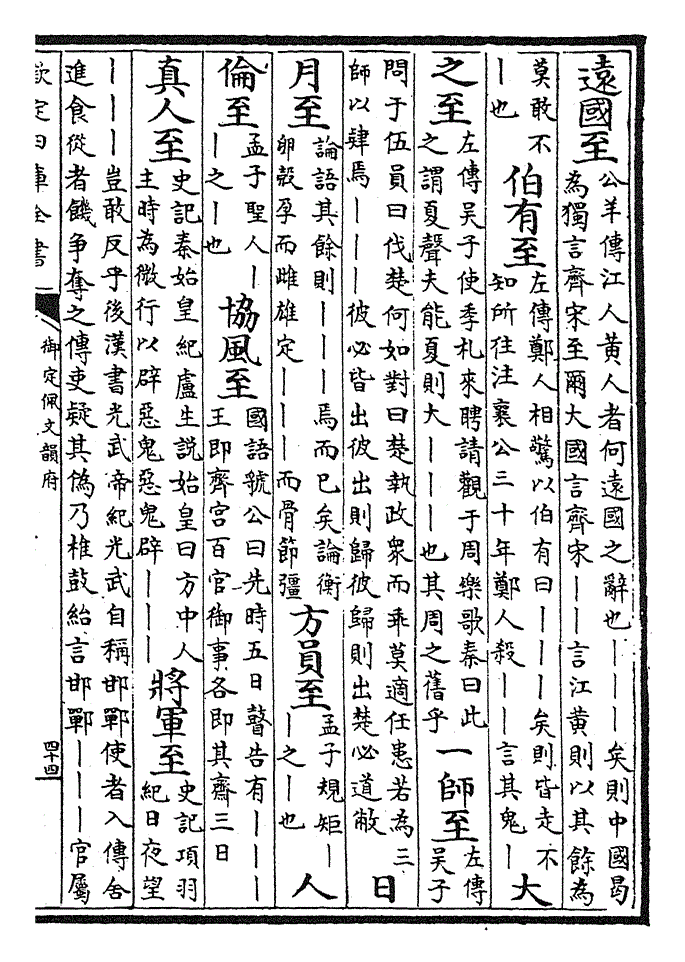 遠國至
公羊傳江人黃人者何遠國之辭也｜｜｜矣則中國曷
為獨言齊宋至爾大國言齊宋｜｜言江黃則以其餘為
莫敢不
｜也
伯有至
左傳鄭人相驚以伯有曰｜｜｜矣則皆走不
知所往注襄公三十年鄭人殺｜｜言其鬼｜
大
之至
左傳吳子使季札來聘請觀于周樂歌秦曰此
之謂夏聲夫能夏則大｜｜｜也其周之舊乎
一師至
左傳
吳子
問于伍員曰伐楚何如對曰楚執政衆而乖莫適任患若為三
師以肆焉｜｜｜彼必皆出彼出則歸彼歸則出楚必道敝
日
月至
論語其餘則｜｜｜焉而已矣論衡
卵殼孕而雌雄定｜｜｜而骨節彊
方員至
孟子規矩｜
｜之｜也
人
倫至
孟子聖人｜
｜之｜也
協風至
國語虢公曰先時五日瞽告有｜｜｜
王即齊宮百官御事各即其齋三日
真人至
史記秦始皇紀盧生說始皇曰方中人
主時為微行以辟惡鬼惡鬼辟｜｜｜
將軍至
史記項羽
紀日夜望
｜｜｜豈敢反乎後漢書光武帝紀光武自稱邯鄲使者入傳舍
進食從者饑爭奪之傳吏疑其偽乃椎鼓紿言邯鄲｜｜｜官屬
欽定四庫全書
御定佩文韻府
四十四